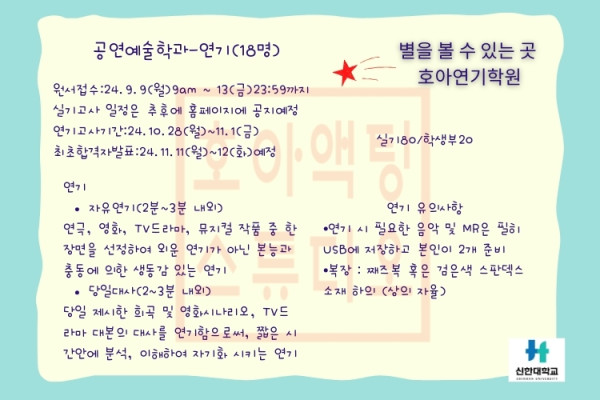 공연예술학과-연기(18명)
별을 볼 수 있는 곳
호아연기학원
원서접수:24.9.9(월)9am ~ 13(금)23:59까지
실기고사 일정은 추후에 홈페이지에 공지예정
연기고사기간:24.10.28(월)~11.1(금)
최초합격자발표:24.11.11(월)~12(화)예정
실기80/학생부20
연기
• 자유연기(2분~3분 내외)
연극, 영화, TV드라마, 뮤지컬 작품 중 한
장면을 선정하여 외운 연기가 아닌 본능과
충동에 의한 생동감 있는 연기
• 당일대사(2~3분 내외)
당일 제시한 희곡 및 영화시나리오, TV드
라마 대본의 대사를 연기함으로써, 짧은 시
간안에 분석, 이해하여 자기화 시키는 연기
연기 유의사항
•연기 시 필요한 음악 및 MR은 필히
USB에 저장하고 본인이 2개 준비
•복장 : 재즈복 혹은 검은색 스판덱스
소재 하의 (상의 자율)
호아액팅
스튜디오
신한대학교
SHINHAN UNIVERSITY